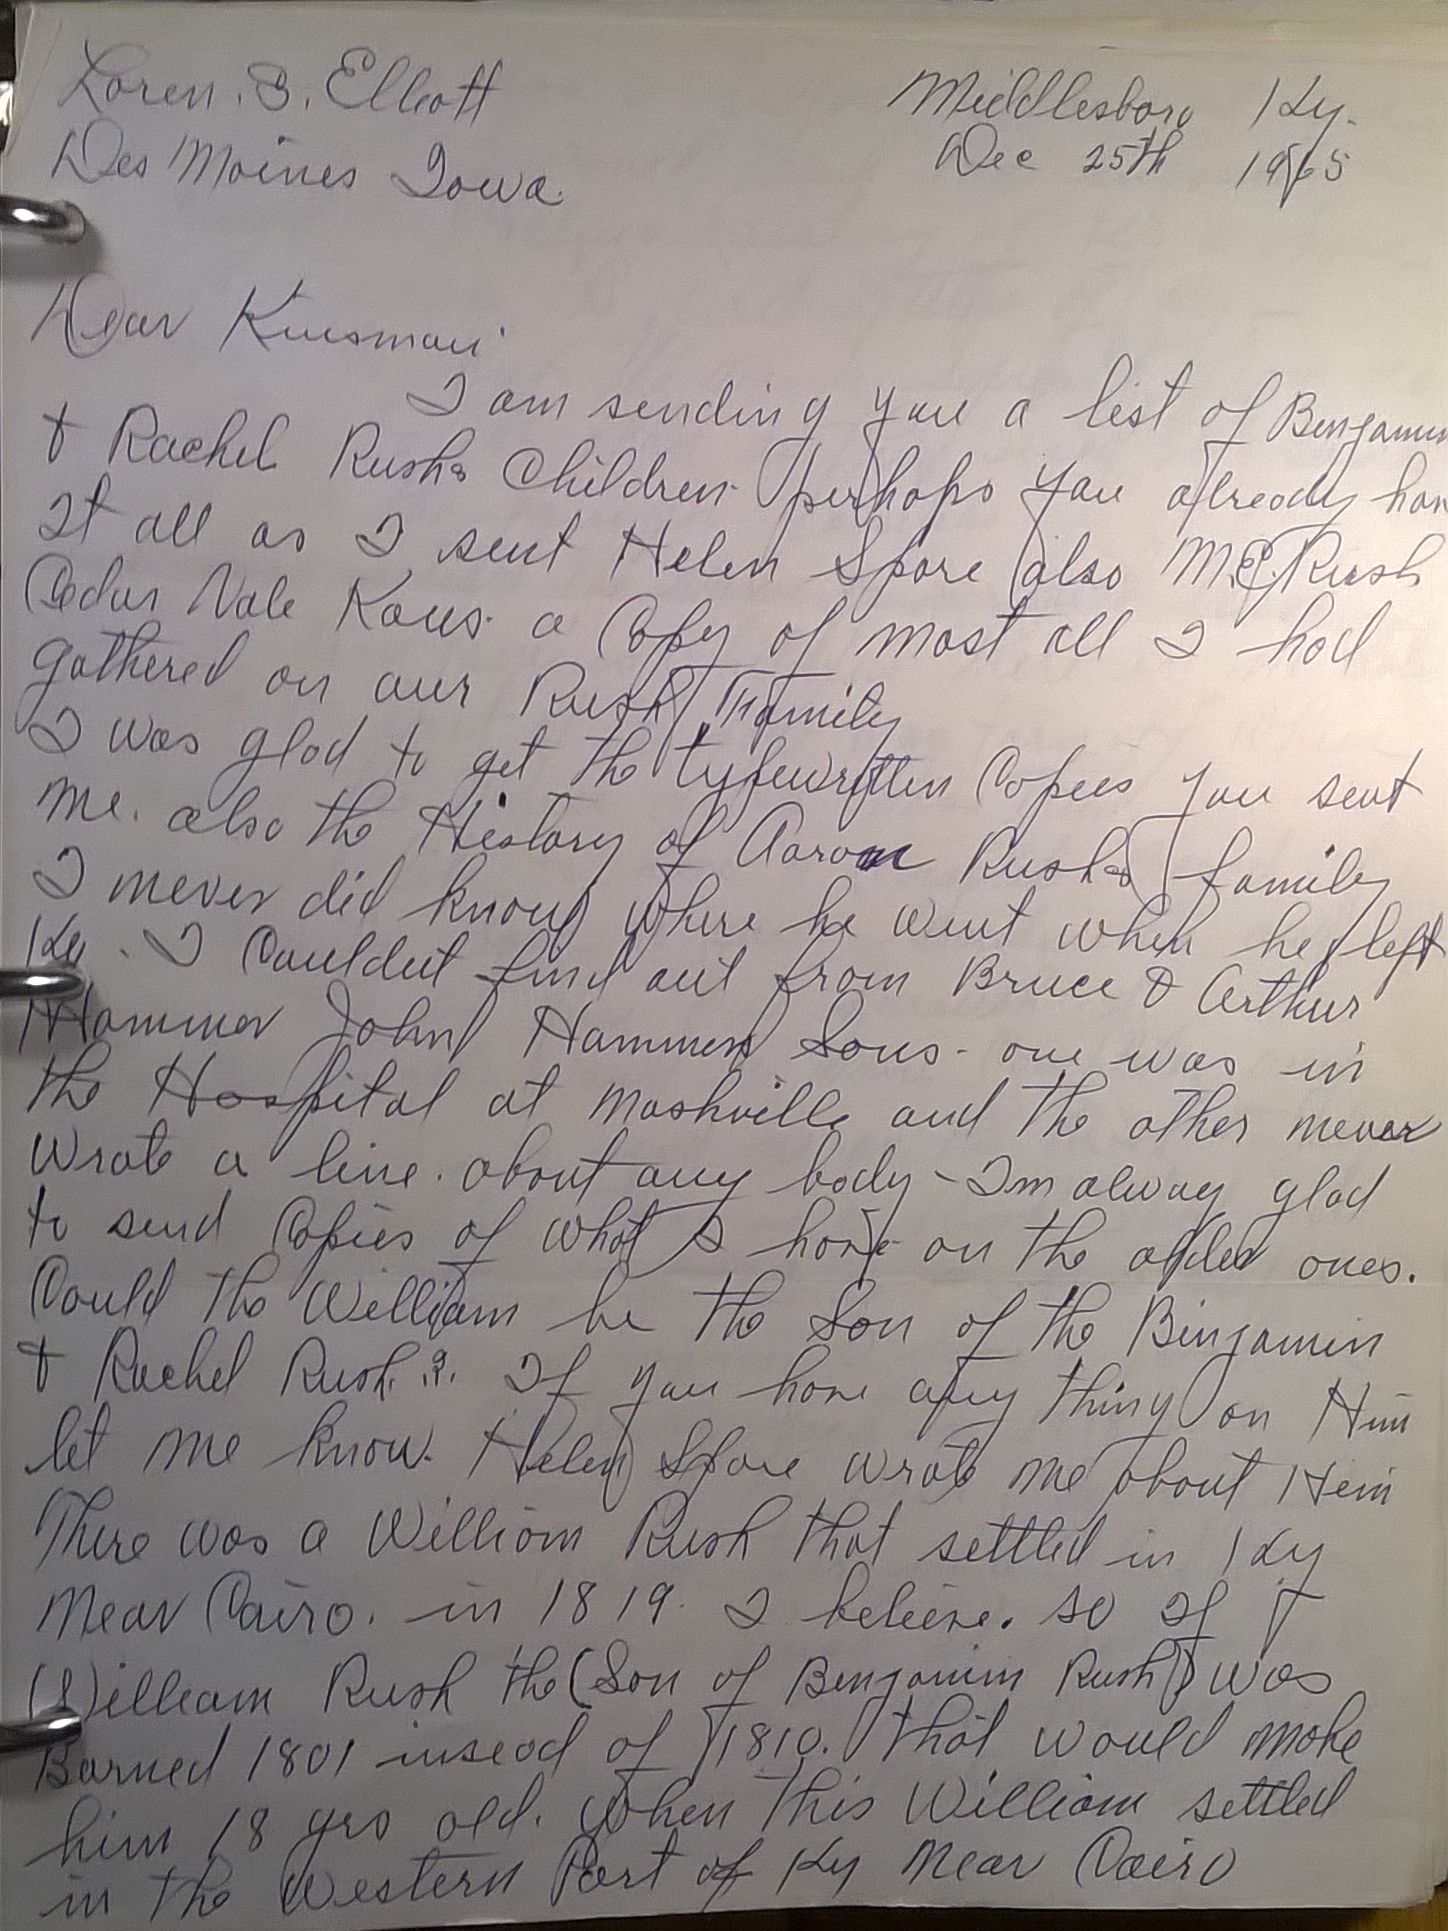 Loren. B. Elliott
Des Moines Iowa.
Middlesboro Ky.
Dec 25th 1965
Dear Kinsman
I am sending you a list of Benjamin
& Rachel Rushs Children. perhaps you already hav
It all as I sent Helen Spore also M.E. Rush
Cedar Vale Kans. a Copy of most all I had
gathered on our Rush Family
I was glad to get the typewritten Copies you sent
me. also the History of Aaron Rushs family
I never did know where he went when he left
Ky. I Couldnt find out from Bruce & Arthur
Hammer John Hammers Sons - one was in
the Hospital at Nashville and the other never
wrote a line. about any body - Im alway glad
to send Copies of what I have on the older ones.
Could the William be the Son of the Binjamin
& Rachel Rush. ?. If you have any thing on Him
let me know. Helen Spore wrote me about Him
There was a William Rush that settled in Ky
Near Cairo. in 1819. I believe. so If
William Rush the (Son of Benjamin Rush) was
Borned 1801 insead of 1810. that would make
him 18 yrs old. when this William settled
in the Western Part of Ky Near Cairo